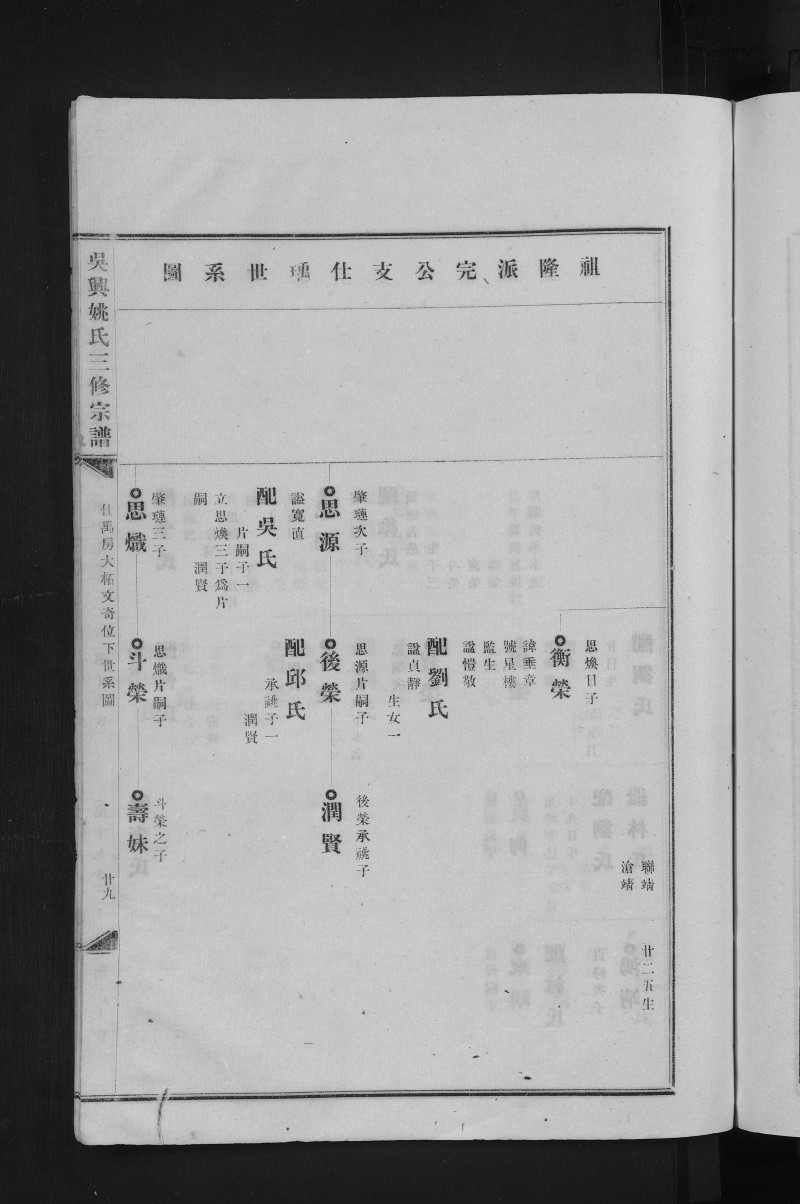 祖隆派完公支仕璶世系圖
聯靖
滄靖
廿二五生
思煥日子
衡榮
諱垂章
號星樓
監生
諡愷敬
配劉氏
諡貞靜
生女一
肇璉次子
思源
諡寬直
配吳氏
片嗣子一
立思煥三子為片
嗣
潤賢
思源片嗣子
後榮
配邱氏
承祧子一
潤賢
後榮承祧子
潤賢
肇璉三子
思熾
思熾片嗣子
斗榮
斗榮之子
壽妹
吳興姚氏三修宗譜
仕禹房大柘文奇位下世系圖
廿九